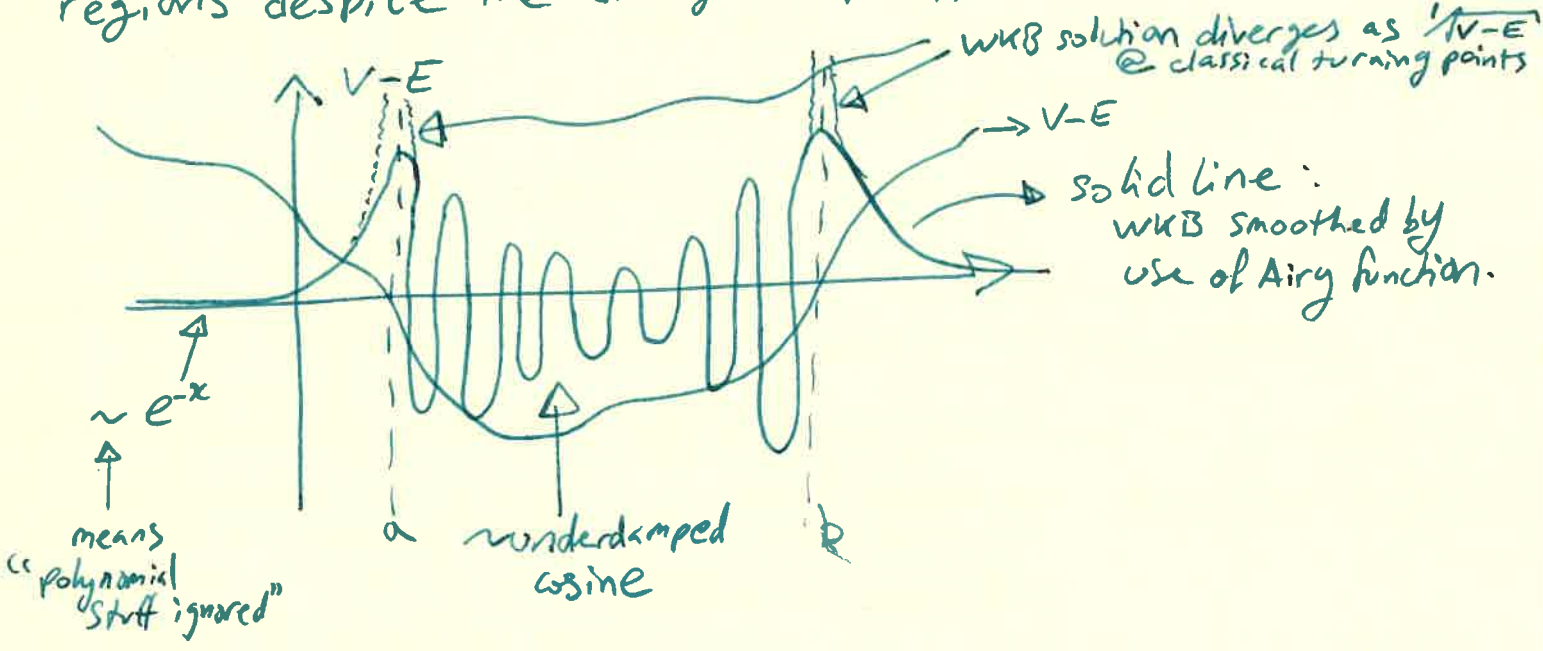 regions despite the
WKB solution diverges as 1/√V-E
@ classical turning points
V-E
→ V-E
solid line :
WKB smoothed by
use of Airy function.
~ e^-x
means
"polynomial
stuff ignored"
a
~underdamped
cosine
b